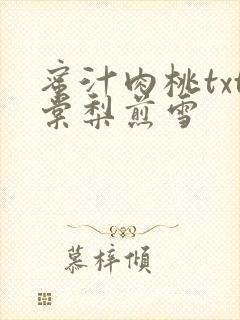 蜜汁肉桃txt
棠梨煎雪
慕梓倾